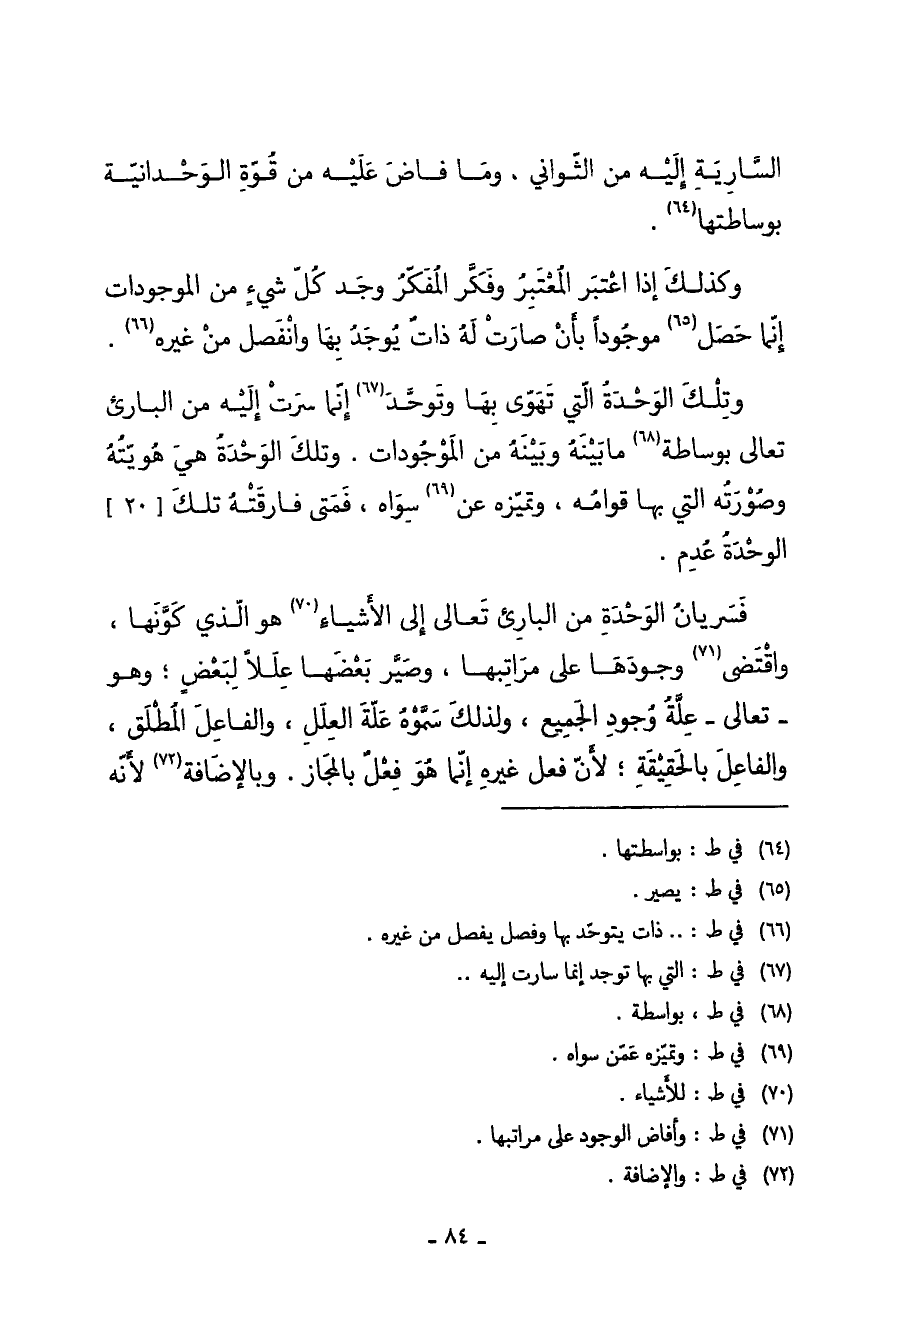 السَّارِيَةِ إِلَيْه من الثّواني ، ومَا فاضَ عَلَيْه من قُوّةِ الوَحْدانيّة
بوساطتها(٦٤) .
وكذلكَ إذا اعْتبَر المُعْتَبِرُ وفَكَّر المُفَكّرُ وجَد كُلّ شيءٍ من الموجودات
إنّما حَصَل(٦٥) موجُوداً بأنْ صارَتْ لَهُ ذاتٌ يُوجَدُ بِهَا وانْفَصل منْ غيره(٦٦) .
وتِلْكَ الوَحْدةُ الّتي تَهَوّى بِهَا وتَوحَّدَ(٦٧) إنّما سرَتْ إلَيْه من البارئ
تعالى بوساطة(٦٨) مابَيْنَهُ وبَيْنَهُ من المَوْجُودات . وتلكَ الوَحْدَةُ هيَ هُويّتُهُ
وصُوْرَتُه التي بها قوامُه ، وتميّزه عن(٦٩) سِوَاه ، فَمَتى فارقَتْهُ تلكَ [ ٢٠ ]
الوحْدَةُ عُدِم .
فَسَريانُ الوَحْدَةِ من البارِئ تَعالى إلى الأَشياء(٧٠) هو الّذي كَوَّنَها ،
واقْتَضى(٧١) وجودَهَا على مرَاتبها ، وصَيَّر بَعْضَها عِلَلاً لِبَعْضٍ ؛ وهو
ـ تعالى ـ عِلَّةُ وُجودِ الجَميع ، ولذلكَ سَمَّوْهُ عَلّةَ العِلَل ، والفاعِلَ المُطْلَق ،
والفاعِلَ بالحَقِيْقَةِ ؛ لأَنّ فعل غيرهِ إنّما هُوَ فِعْلٌ بالمجَاز . وبالإضَافة(٧٢) لأنّه
(٦٤) في ط : بواسطتها .
(٦٥) في ط : يصير .
(٦٦) في ط : .. ذات يتوحّد بها وفصل يفصل من غيره .
(٦٧) في ط : التي بها توجد إنما سارت إليه ..
(٦٨) في ط ، بواسطة .
(٦٩) في ط : وتميّزه عَمّن سواه .
(٧٠) في ط : للأَشياء .
(٧١) في ط : وأفاض الوجود على مراتبها .
(٧٢) في ط : والإضافة .
ـ ٨٤ ـ